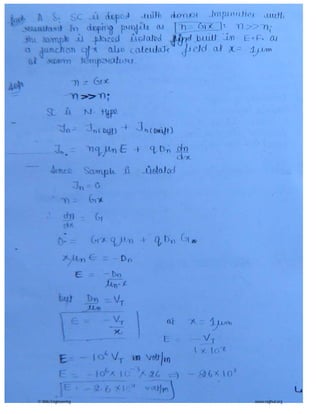 A Si SC is doped with donor impurities with
resultant in doping profile as n = Gx n >> ni
the sample is placed isolated find built in E.F. as
a function of x also calculate field at x = 1μm
at room temperature.
Soln
n = Gx
n >> ni
SC is N type
Jn = Jn(diff) + Jn(drift)
Jn = nqμnE + qDn dn/dx
Since Sample is isolated
Jn = 0
n = Gx
dn/dx = G
0 = Gxqμn + qDn G
xμnE = -Dn
E = -Dn/μn·x
but Dn/μn = VT
E = -VT/x at x = 1μm
E = -VT/1×10⁻⁶
E = -10⁶ VT in volt/m
E = -10⁶×10⁻³×26 ⇒ -26×10³
E = -2.6×10⁴ volt/m